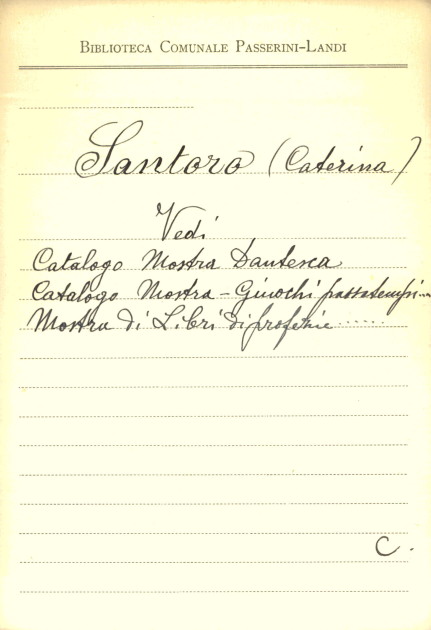 BIBLIOTECA COMUNALE PASSERINI-LANDI
Santoro (Caterina)
Vedi
Catalogo Mostra Dantesca
Catalogo Mostra - Giuochi passatempi...
Mostra di Libri di profezie......
C.